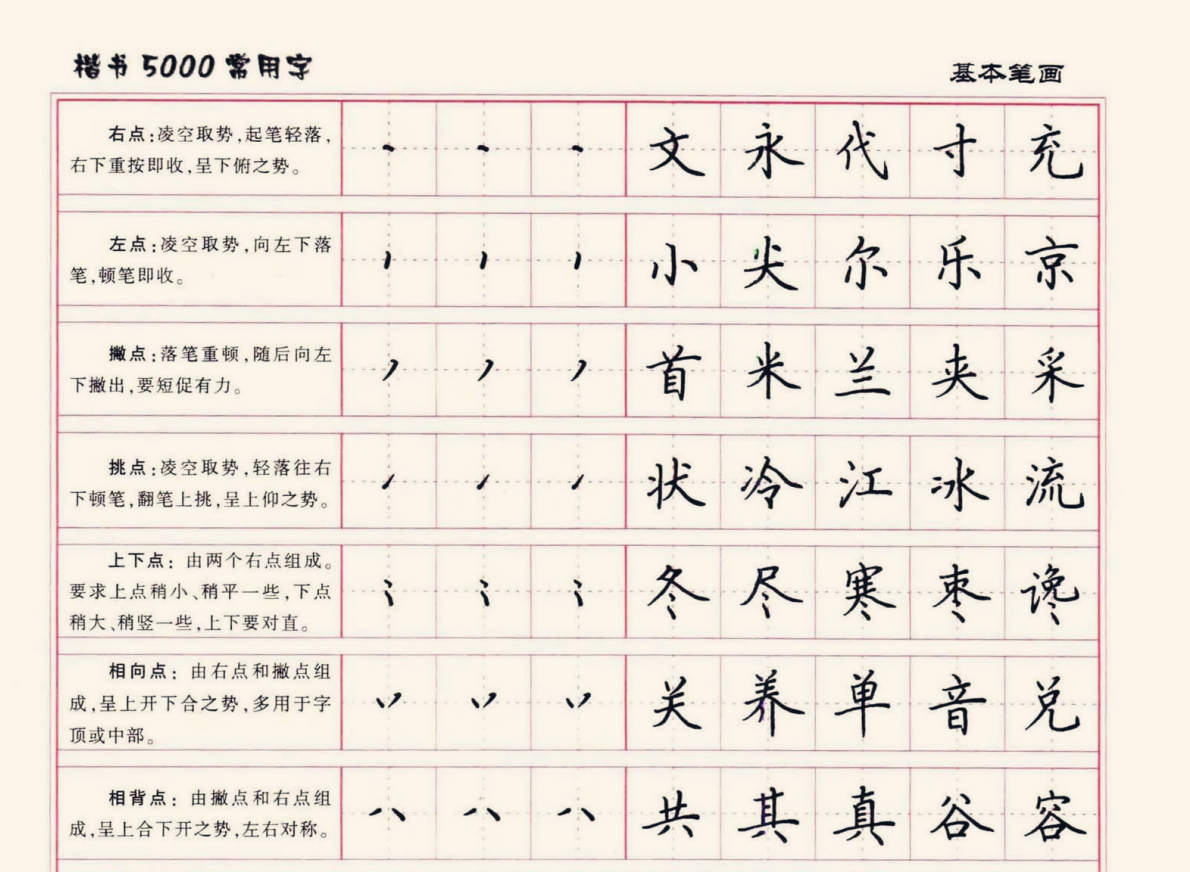 楷书5000常用字
基本笔画
右点:凌空取势,起笔轻落,
右下重按即收,呈下俯之势。
文 永 代 寸 充
左点:凌空取势,向左下落
笔,顿笔即收。
小 尖 尔 乐 京
撇点:落笔重顿,随后向左
下撇出,要短促有力。
首 米 兰 夹 采
挑点:凌空取势,轻落往右
下顿笔,翻笔上挑,呈上仰之势。
状 冷 江 冰 流
上下点:由两个右点组成。
要求上点稍小、稍平一些,下点
稍大、稍竖一些,上下要对直。
冬 尽 寒 枣 谗
相向点:由右点和撇点组
成,呈上开下合之势,多用于字
顶或中部。
关 养 单 音 兑
相背点:由撇点和右点组
成,呈上合下开之势,左右对称。
共 其 真 谷 容